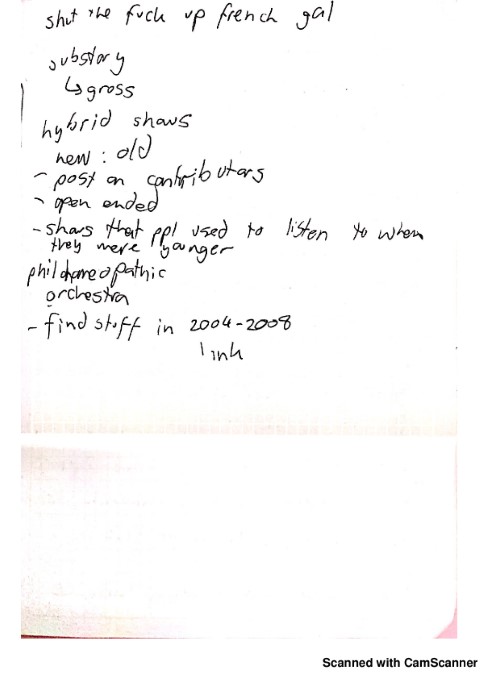 shut the fuck up french gal
substory
↳ gross
hybrid shows
new : old
- post on contributors
- open ended
- shows that ppl used to listen to when
they were younger
philhomeopathic
orchestra
- find stuff in 2004-2008
link
Scanned with CamScanner